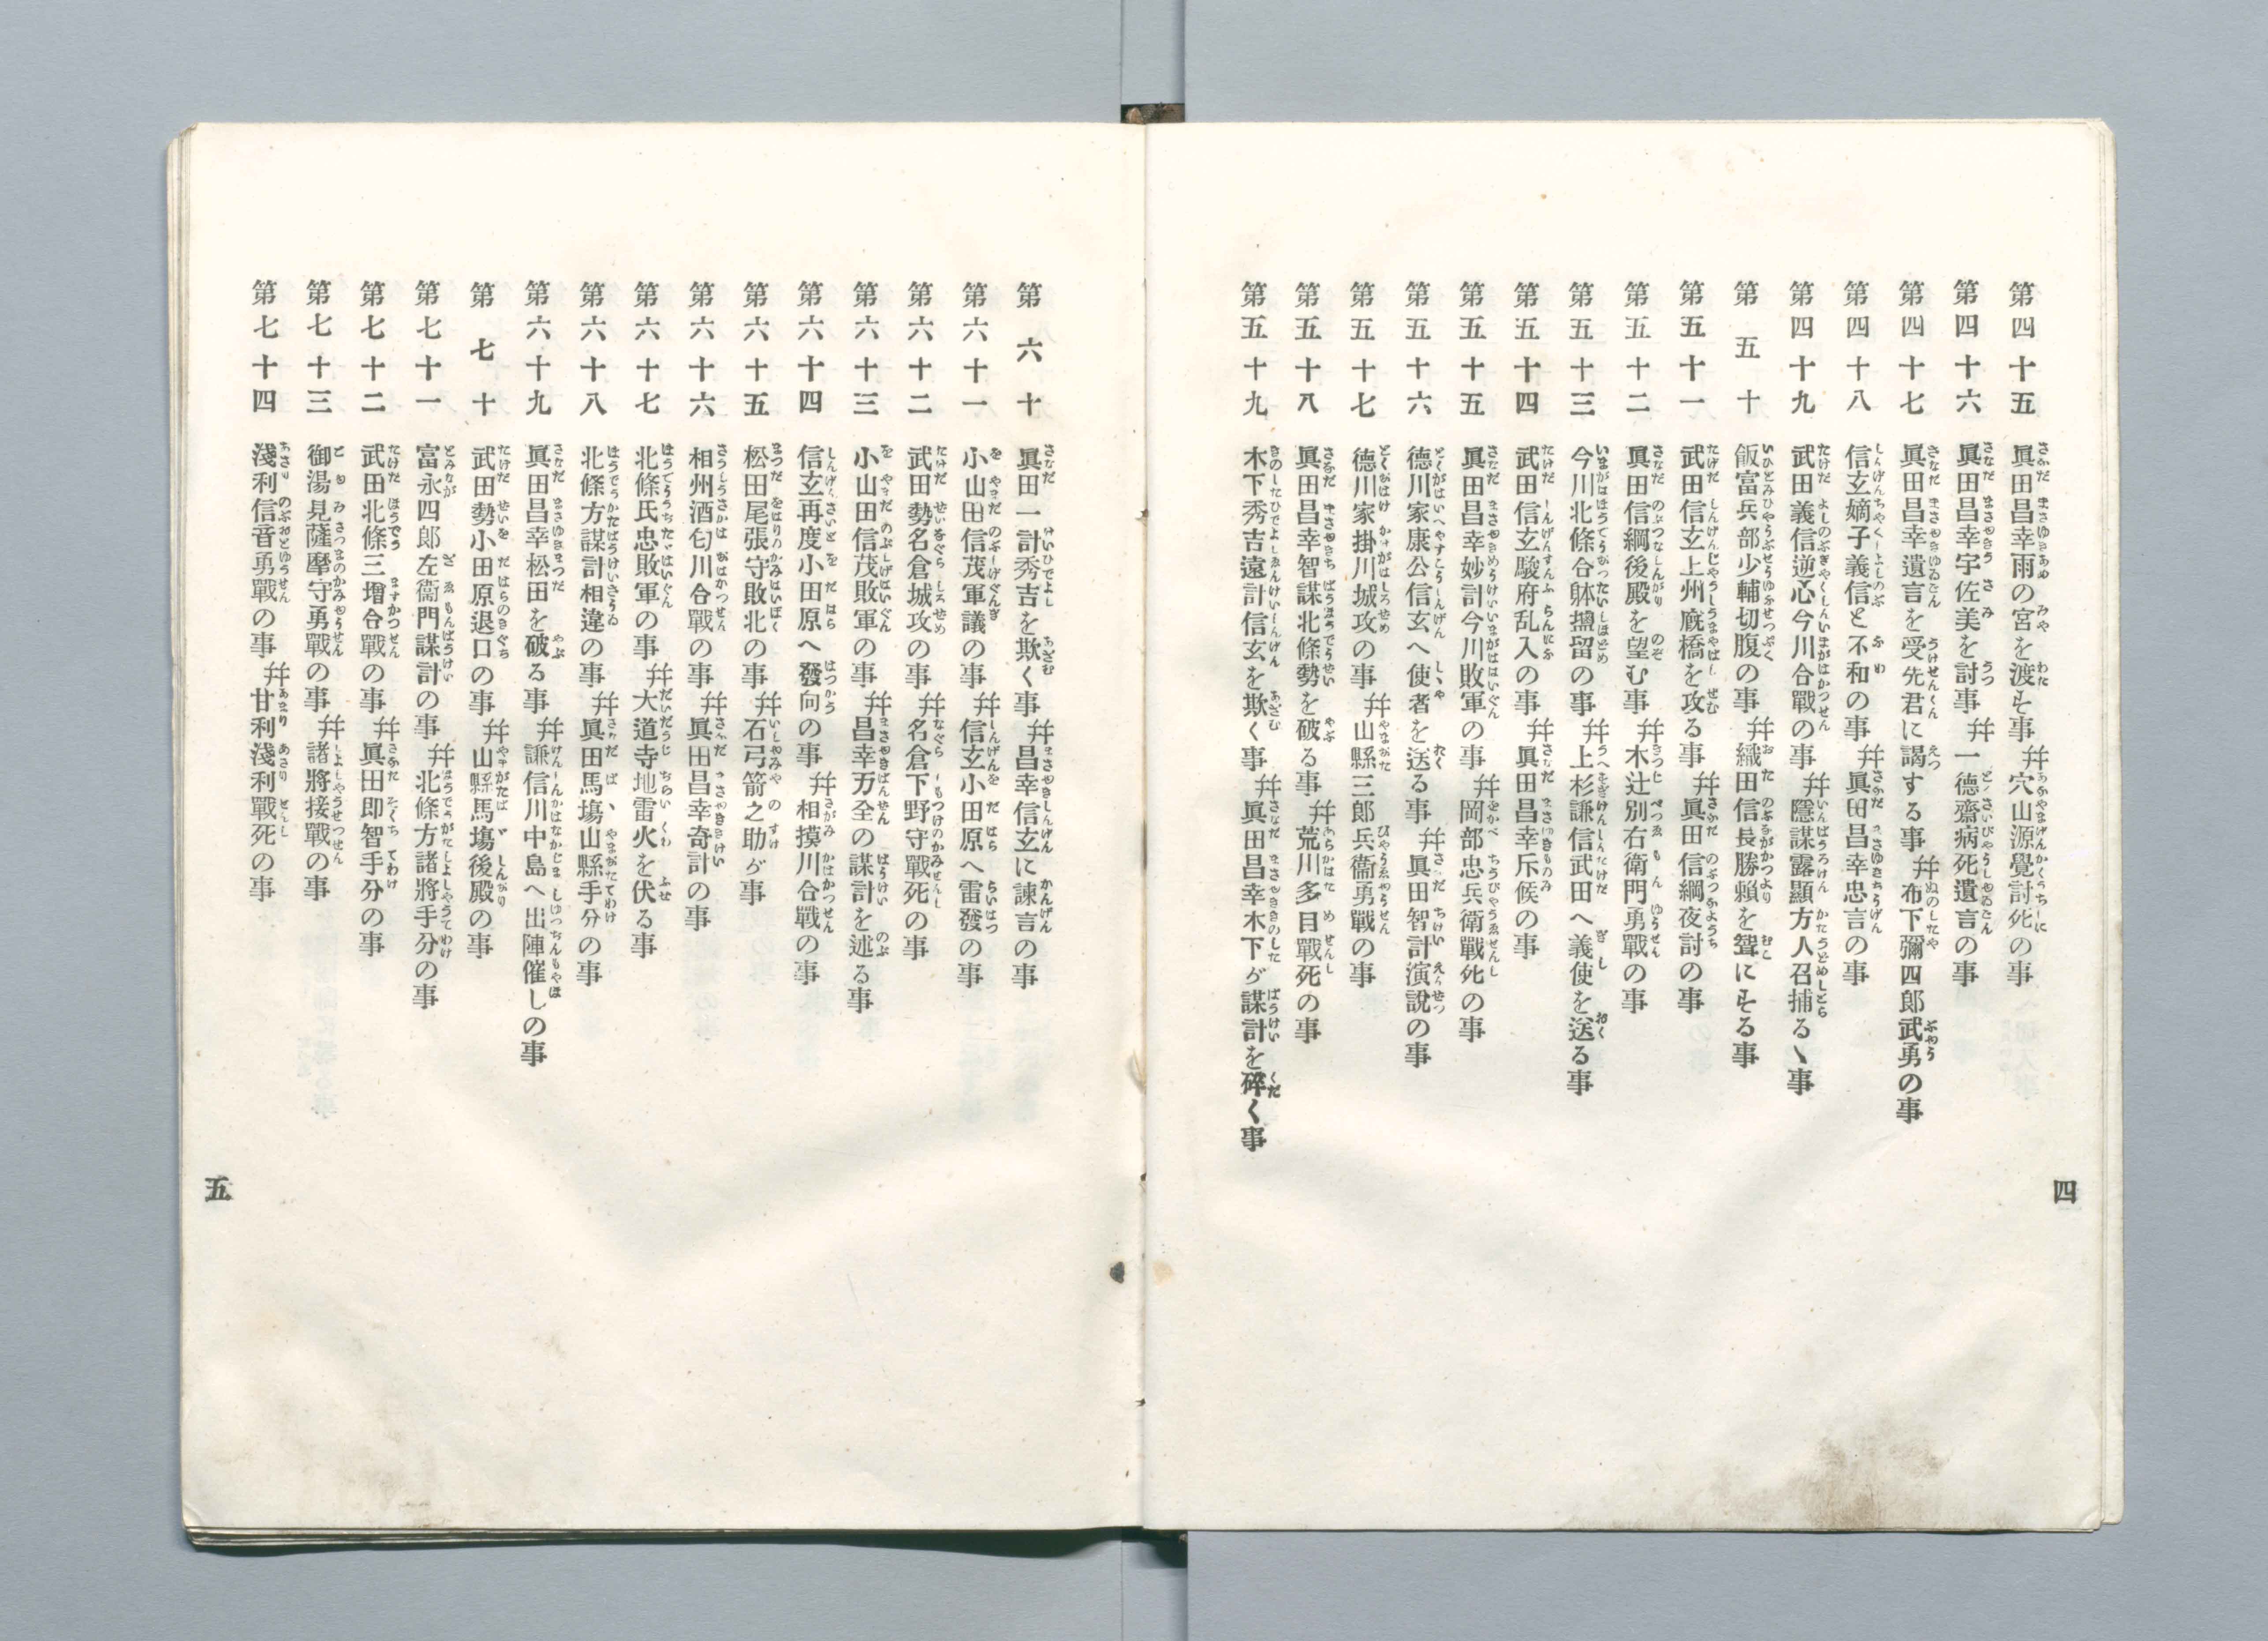 第四十五 眞田昌幸雨の宮を渡す事 幷 穴山源覺討死の事
第四十六 眞田昌幸宇佐美を討事 幷 一德齋病死遺言の事
第四十七 眞田昌幸遺言を受先君に謁する事 幷 布下彌四郎武勇の事
第四十八 信玄嫡子義信と不和の事 幷 眞田昌幸忠言の事
第四十九 武田義信逆心今川合戰の事 幷 隱謀露顯方人召捕るヽ事
第五十 飯富兵部少輔切腹の事 幷 織田信長勝賴を聟にする事
第五十一 武田信玄上州廐橋を攻る事 幷 眞田信綱夜討の事
第五十二 眞田信綱後殿を望む事 幷 木辻別右衛門勇戰の事
第五十三 今川北條合躰鹽留の事 幷 上杉謙信武田へ義使を送る事
第五十四 武田信玄駿府乱入の事 幷 眞田昌幸斥候の事
第五十五 眞田昌幸妙計今川敗軍の事 幷 岡部忠兵衛戰死の事
第五十六 德川家康公信玄へ使者を送る事 幷 眞田智計演說の事
第五十七 德川家掛川城攻の事 幷 山縣三郎兵衞勇戰の事
第五十八 眞田昌幸智謀北條勢を破る事 幷 荒川多目戰死の事
第五十九 木下秀吉遠計信玄を欺く事 幷 眞田昌幸木下が謀計を碎く事
四
第六十 眞田一計秀吉を欺く事 幷 昌幸信玄に諫言の事
第六十一 小山田信茂軍議の事 幷 信玄小田原へ雷發の事
第六十二 武田勢名倉城攻の事 幷 名倉下野守戰死の事
第六十三 小山田信茂敗軍の事 幷 昌幸万全の謀計を述る事
第六十四 信玄再度小田原へ發向の事 幷 相摸川合戰の事
第六十五 松田尾張守敗北の事 幷 石弓箭之助が事
第六十六 相州酒匂川合戰の事 幷 眞田昌幸奇計の事
第六十七 北條氏忠敗軍の事 幷 大道寺地雷火を伏る事
第六十八 北條方謀計相違の事 幷 眞田馬塲山縣手分の事
第六十九 眞田昌幸松田を破る事 幷 謙信川中島へ出陣催しの事
第七十 武田勢小田原退口の事 幷 山縣馬塲後殿の事
第七十一 富永四郎左衞門謀計の事 幷 北條方諸將手分の事
第七十二 武田北條三增合戰の事 幷 眞田即智手分の事
第七十三 御湯見薩摩守勇戰の事 幷 諸將接戰の事
第七十四 淺利信音勇戰の事 幷 甘利淺利戰死の事
五